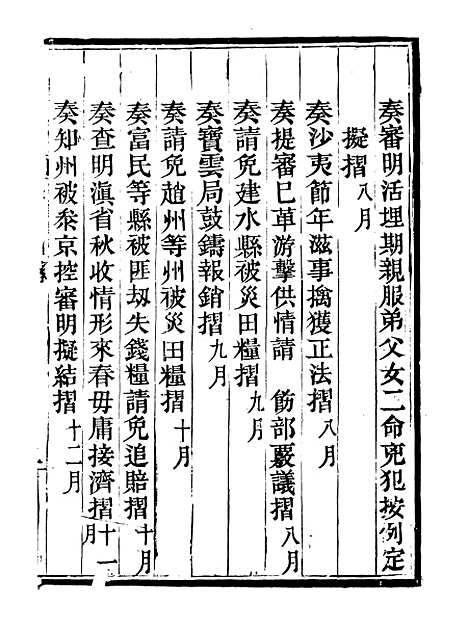 奏審明活埋期親服弟父女二命兇犯按例定
擬摺八月
奏沙夷節年滋事擒獲正法摺八月
奏提審巳革游擊供情請　飭部覈議摺八月
奏請免建水縣被災田糧摺九月
奏寶雲局鼓鑄報銷摺九月
奏請免趙州等州被災田糧摺十月
奏富民等縣被匪刼失錢糧請免追賠摺十月
奏查明滇省秋收情形來春毋庸接濟摺十一月
奏知州被叅京控審明擬結摺十二月